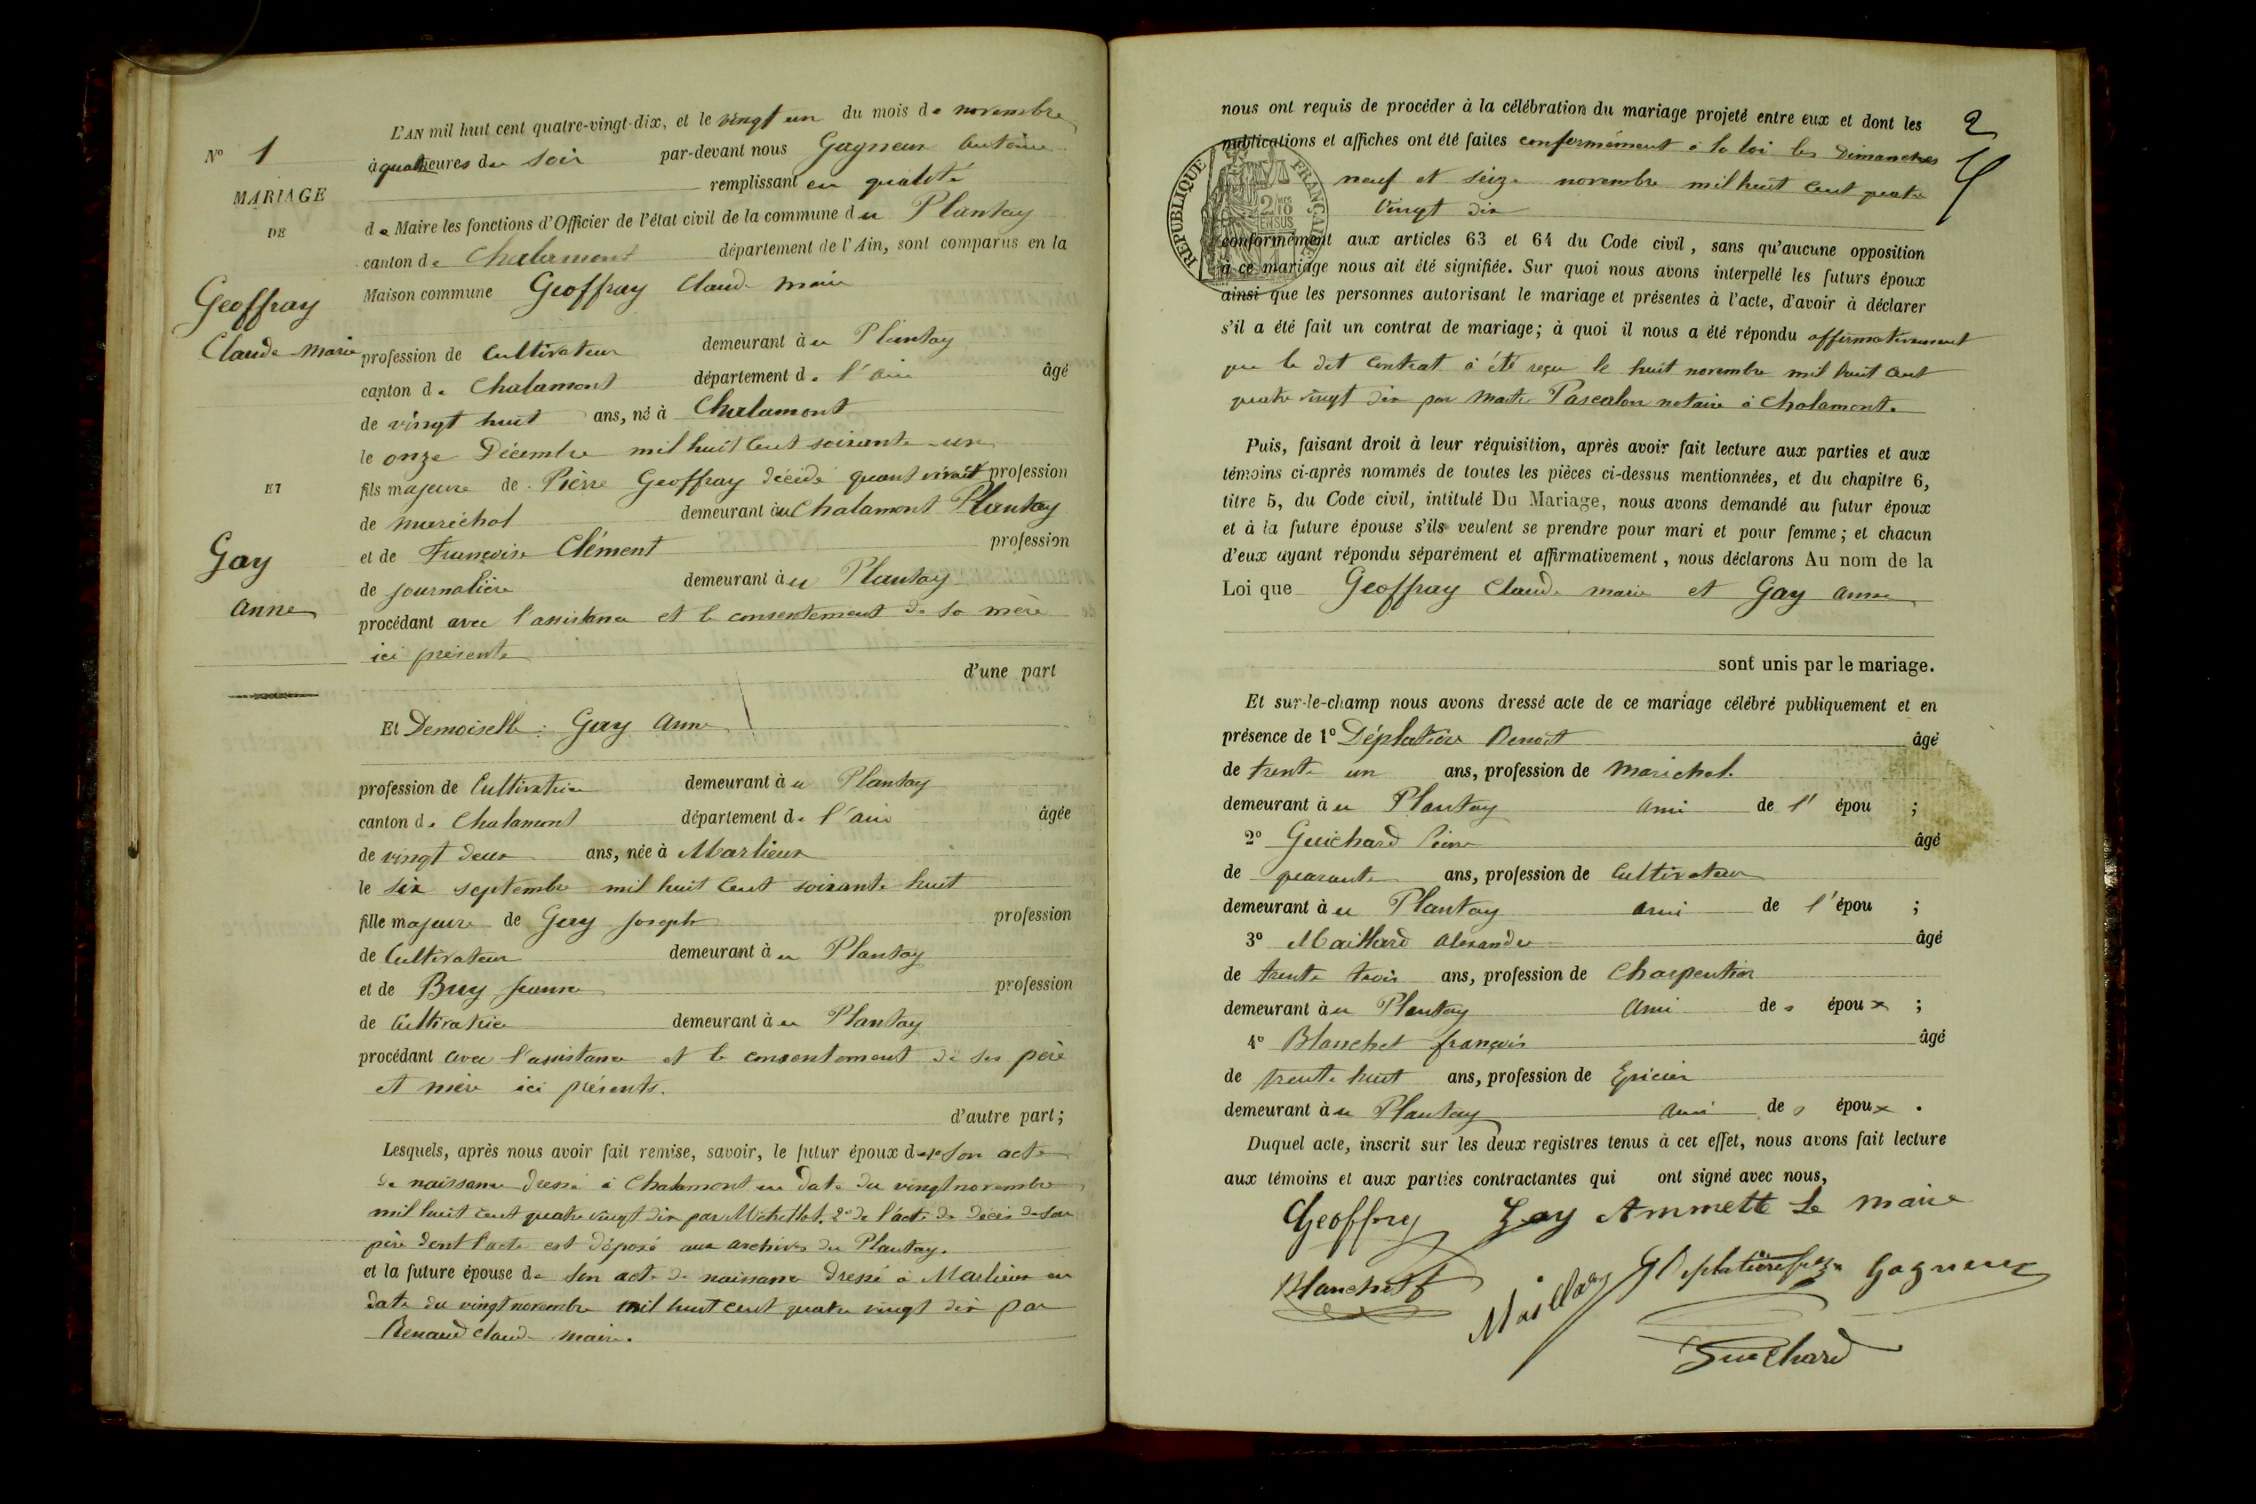 L'AN mil huit cent quatre-vingt-dix, et le vingt un du mois de novembre
à quatre heures du soir par-devant nous Gagneux Antoine
remplissant en qualité
de Maire les fonctions d'Officier de l'état civil de la commune du Plantay
canton de Chalamont département de l'Ain, sont comparus en la
Maison commune Geoffray Claude marie
profession de Cultivateur demeurant àu Plantay
canton de Chalamont département de l'ain âgé
de vingt huit ans, né à Chalamont
le onze Décembre mil huit cent soixante-un
fils majeure de Pierre Geoffray décédé quant vivait profession
de maréchal demeurant àu Chalamont Plantay
et de Françoise Clément profession
de journalière demeurant àu Plantay
procédant avec l'assistance et le consentement de sa mère
ici présente
d'une part
N° 1
MARIAGE
DE
Geoffray
Claude-Marie
ET
Gay
Anne
Et Demoiselle : Gay Anne
profession de Cultivatrice demeurant àu Plantay
canton de Chalamont département de l'ain âgée
de vingt deux ans, née à Marlieux
le six septembre mil huit cent soixante huit
fille majeure de Gay Joseph profession
de Cultivateur demeurant àu Plantay
et de Buy Jeanne profession
de Cultivatrice demeurant àu Plantay
procédant avec l'assistance et le consentement de ses père
et mère ici présents.
d'autre part;
Lesquels, après nous avoir fait remise, savoir, le futur époux de 1° son acte
de naissance dressé à Chalamont en date du vingt novembre
mil huit cent quatre vingt dix par Michellet. 2° de l'acte de décès de son
père dont l'acte est déposé aux archives du Plantay.
et la future épouse de son acte de naissance dressé à Marlieux en
date du vingt novembre mil huit cent quatre vingt dix par
Renaud Claude maire.
2
nous ont requis de procéder à la célébration du mariage projeté entre eux et dont les
publications et affiches ont été faites conformément à la loi les Dimanches
neuf et seize novembre mil huit cent quatre
vingt dix
RÉPUBLIQUE FRANÇAISE
conformément aux articles 63 et 64 du Code civil, sans qu'aucune opposition
à ce mariage nous ait été signifiée. Sur quoi nous avons interpellé les futurs époux
ainsi que les personnes autorisant le mariage et présentes à l'acte, d'avoir à déclarer
s'il a été fait un contrat de mariage; à quoi il nous a été répondu affirmativement
que le dit contrat a été reçu le huit novembre mil huit cent
quatre vingt dix par Maître Pascalon notaire à Chalamont.
Puis, faisant droit à leur réquisition, après avoir fait lecture aux parties et aux
témoins ci-après nommés de toutes les pièces ci-dessus mentionnées, et du chapitre 6,
titre 5, du Code civil, intitulé Du Mariage, nous avons demandé au futur époux
et à la future épouse s'ils veulent se prendre pour mari et pour femme; et chacun
d'eux ayant répondu séparément et affirmativement, nous déclarons Au nom de la
Loi que Geoffray Claude marie et Gay anne
sont unis par le mariage.
Et sur-le-champ nous avons dressé acte de ce mariage célébré publiquement et en
présence de 1° Déplatière Benoit âgé
de trente un ans, profession de maréchal
demeurant àu Plantay ami de l' épou ;
2° Guichard Pierre âgé
de quarante ans, profession de Cultivateur
demeurant àu Plantay ami de l'épou ;
3° Maillard Alexandre âgé
de trente trois ans, profession de Charpentier
demeurant àu Plantay ami des époux ;
4° Blanchet françois âgé
de trente huit ans, profession de Epicier
demeurant àu Plantay ami des époux .
Duquel acte, inscrit sur les deux registres tenus à cet effet, nous avons fait lecture
aux témoins et aux parties contractantes qui ont signé avec nous,
Geoffray Gay Ammette Le maire
Blanchet f Maillard Deplatière Gagneux
Guichard